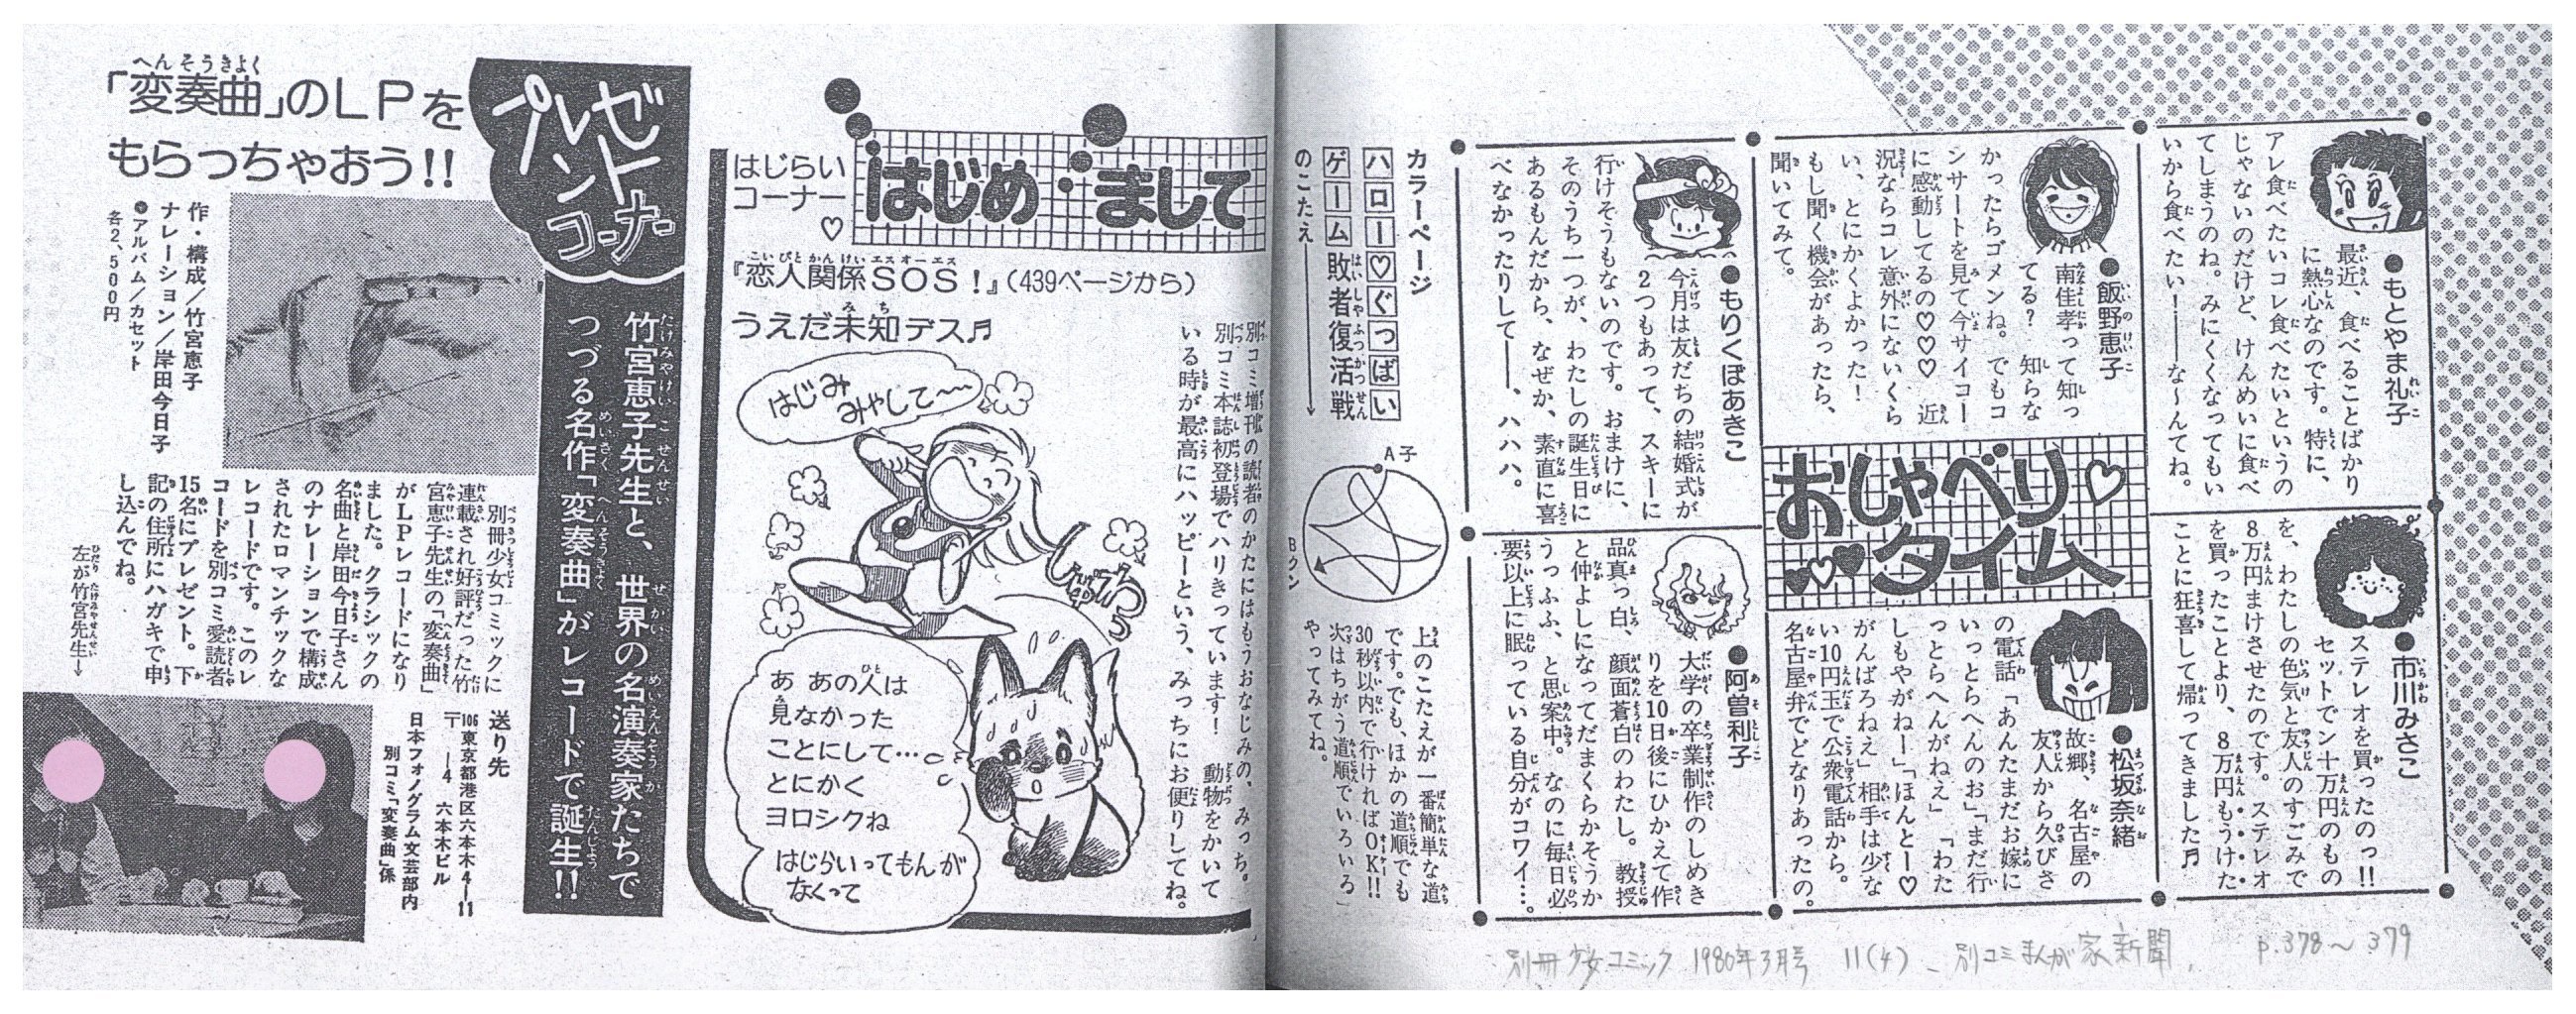 おしゃべり♡
タイム
●もとやま礼子
最近、食べることばかり
に熱心なのです。特に、
アレ食べたいコレ食べたいというの
じゃないのだけど、けんめいに食べ
てしまうのね。みにくくなってもい
いから食べたい！――な～んてね。
●市川みさこ
ステレオを買ったのっ!!
セットでン十万円のもの
を、わたしの色気と友人のすごみで
8万円まけさせたのです。ステレオ
を買ったことより、8万円もうけた
ことに狂喜して帰ってきました♬
●飯野恵子
南佳孝って知っ
てる？　知らな
かったらゴメンね。でもコ
ンサートを見て今サイコー
に感動してるの♡♡♡　近
況ならコレ意外にないくら
い、とにかくよかった！
もし聞く機会があったら、
聞いてみて。
●松坂奈緒
故郷、名古屋の
友人から久びさ
の電話「あんたまだお嫁に
いっとらへんのお」「まだ行
っとらへんがねえ」「わた
しもやがねー」「ほんとー♡
がんばろねえ」相手は少な
い10円玉で公衆電話から。
名古屋弁でどなりあったの。
●もりくぼあきこ
今月は友だちの結婚式が
2つもあって、スキーに
行けそうもないのです。おまけに、
そのうち一つが、わたしの誕生日に
あるもんだから、なぜか、素直に喜
べなかったりして――、ハハハ。
●阿曽利子
大学の卒業制作のしめき
りを10日後にひかえて作
品真っ白、顔面蒼白のわたし。教授
と仲よしになってだまくらかそうか
うっふふ、と思案中。なのに毎日必
要以上に眠っている自分がコワイ…。
カラーページ
ハロー♡ぐっばい
ゲーム敗者復活戦
のこたえ
A子
Bクン
上のこたえが一番簡単な道
です。でも、ほかの道順でも
30秒以内で行ければOK!!
次はちがう道順でいろいろ
やってみてね。
別冊少女コミック　1980年3月号　11(4)　別コミまんが家新聞、　p.378～379
はじらい
コーナー
♡
はじめまして
『恋人関係SOS！』(439ページから)
うえだ未知デス♬
別コミ増刊の読者のかたにはもうおなじみの、みっち。
別コミ本誌初登場でハリきっています！　動物をかいて
いる時が最高にハッピーという、みっちにお便りしてね。
はじみ
みやして～
あ あの人は
見なかった
ことにして…
とにかく
ヨロシクね
はじらいってもんが
なくって
プレゼント
コーナー
「変奏曲」のLPを
もらっちゃおう!!
竹宮恵子先生と、世界の名演奏家たちで
つづる名作「変奏曲」がレコードで誕生!!
作・構成／竹宮恵子
ナレーション／岸田今日子
●アルバム／カセット
各2、500円
別冊少女コミックに
連載され好評だった竹
宮恵子先生の「変奏曲」
がLPレコードになり
ました。クラシックの
名曲と岸田今日子さん
のナレーションで構成
されたロマンチックな
レコードです。このレ
コードを別コミ愛読者
15名にプレゼント。下
記の住所にハガキで申
し込んでね。
左が竹宮先生→
送り先
〒106東京都港区六本木4―11
―4　六本木ビル
日本フォノグラム文芸部内
別コミ「変奏曲」係